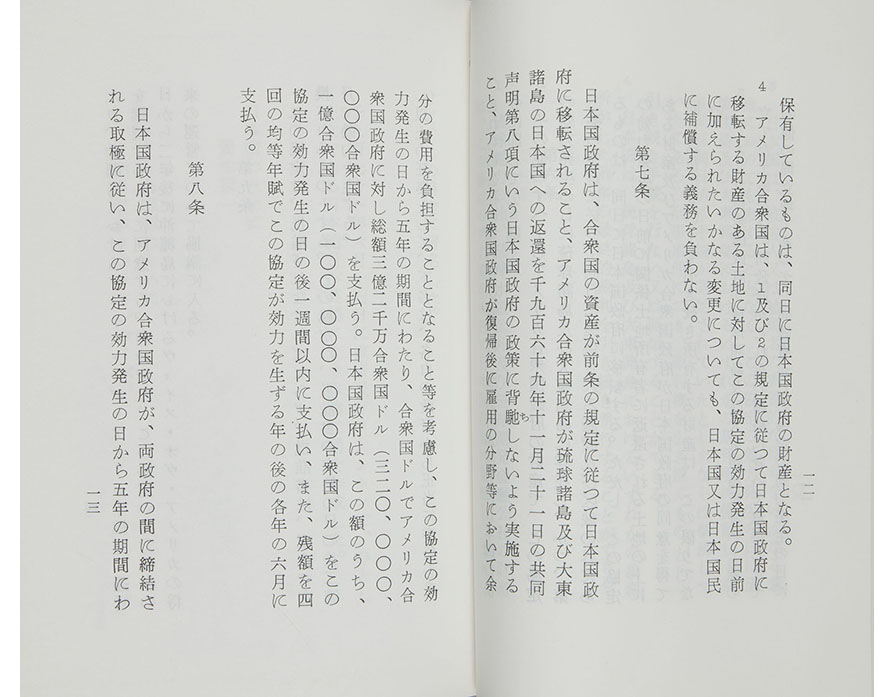 保有しているものは、同日に日本国政府の財産となる。
4 アメリカ合衆国は、1及び2の規定に従つて日本国政府に
移転する財産のある土地に対してこの協定の効力発生の日前
に加えられたいかなる変更についても、日本国又は日本国民
に補償する義務を負わない。
第七条
日本国政府は、合衆国の資産が前条の規定に従つて日本国政
府に移転されること、アメリカ合衆国政府が琉球諸島及び大東
諸島の日本国への返還を千九百六十九年十一月二十一日の共同
声明第八項にいう日本国政府の政策に背馳ちしないよう実施する
こと、アメリカ合衆国政府が復帰後に雇用の分野等において余
一二
分の費用を負担することとなること等を考慮し、この協定の効
力発生の日から五年の期間にわたり、合衆国ドルでアメリカ合
衆国政府に対し総額三億二千万合衆国ドル(三二〇、〇〇〇、
〇〇〇合衆国ドル)を支払う。日本国政府は、この額のうち、
一億合衆国ドル(一〇〇、〇〇〇、〇〇〇合衆国ドル)をこの
協定の効力発生の日の後一週間以内に支払い、また、残額を四
回の均等年賦でこの協定が効力を生ずる年の後の各年の六月に
支払う。
第八条
日本国政府は、アメリカ合衆国政府が、両政府の間に締結さ
れる取極に従い、この協定の効力発生の日から五年の期間にわ
一三